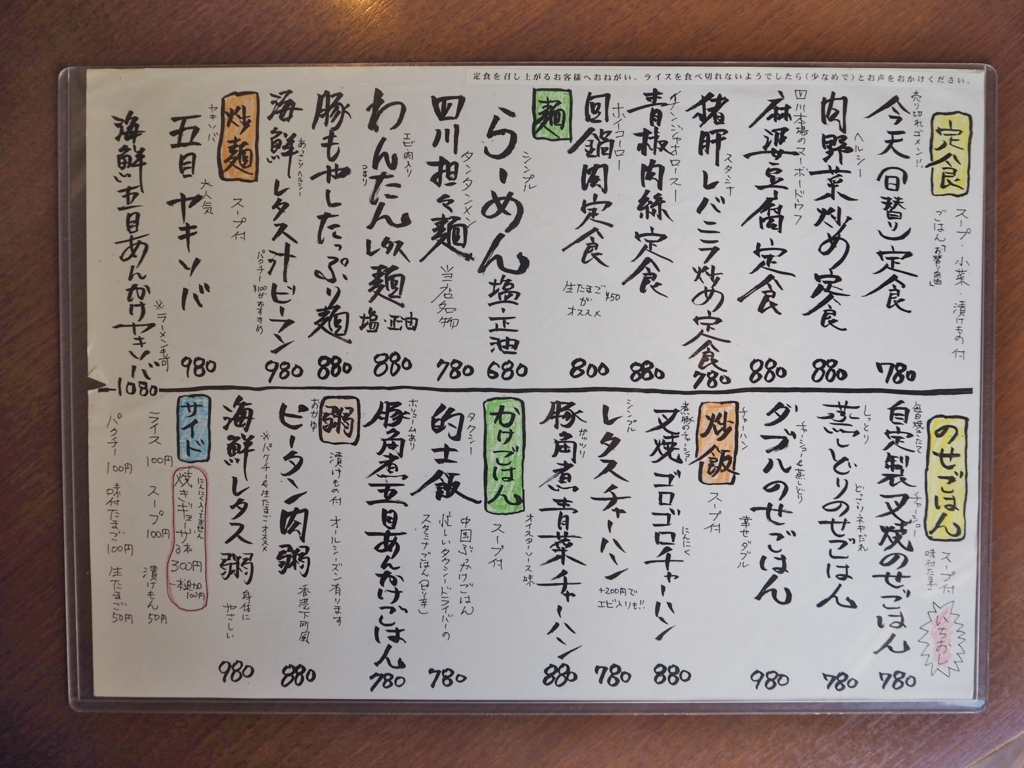 定食を召し上がるお客様へおねがい。ライスを食べ切れないようでしたら(少なめで)とお声をおかけください。
定食
スープ・小菜・漬けもの付
売り切れゴメン!!
今天(日替り)定食
780
ヘルシー
肉野菜炒め定食
880
四川本場の
麻婆豆腐定食
880
スタミナ
猪肝レバニラ炒め定食
780
チンジャオロースー
青椒肉絲定食
880
ホイコーロー
回鍋肉定食
生たまごが¥50オススメ
800
麺
シンプル
らーめん
塩・正油
680
タンタンメン
四川担々麺
当店名物
780
エビ肉入り
わんたん麺
塩・正油
880
豚もやしたっぷり麺
880
あっさりヘルシー
海鮮レタス汁ビーフン
パクチー¥100がおすすめ
980
炒麺
スープ付
ヤキソバ
五目ヤキソバ
大人気
980
海鮮五目あんかけヤキソバ
※ラーメンも可
1080
のせごはん
スープ付
味付たまご
いちおし
毎日焼きたて
チャーシュー
自家製叉焼のせごはん
780
しっとり
蒸しどりのせごはん
780
チャーシューと蒸しどり
ダブルのせごはん
幸せダブル
980
炒飯
チャーハン
スープ付
煮豚のチャーシュー
叉焼ゴロゴロチャーハン
にんにく
880
シンプル
レタスチャーハン
+200円でエビ入りも!!
780
ガッツリ
豚角煮青菜チャーハン
オイスターソース味
880
かけごはん
スープ付
タクシー
的士飯
中国ぶっかけごはん
忙しいタクシードライバーの
スタミナごはん
780
ボリュームあり
豚角煮五目あんかけごはん
780
粥
おかゆ
漬けもの付
オールシーズン有ります
ピータン肉粥
香港下町風
※パクチーも生たまごオススメ
880
海鮮レタス粥
身体にやさしい
980
サイド
にんにく入ってません
焼きギョーザ
3本
300円
一本追加100円
ライス 100円
スープ 100円
漬けもん 50円
パクチー 100円
味付たまご 100円
生たまご 50円